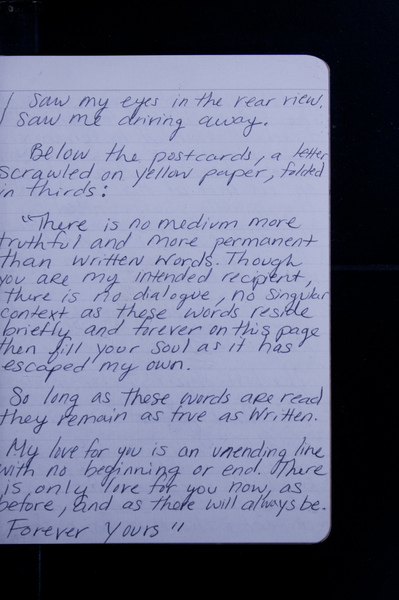 I saw my eyes in the rear view.
I saw me driving away.
Below the postcards, a letter
scrawled on yellow paper, folded
in thirds:
"There is no medium more
truthful and more permanent
than written words. Though
you are my intended recipient,
there is no dialogue, no singular
context as these words reside
briefly and forever on this page
then fill your soul as it has
escaped my own.
So long as these words are read
they remain as true as written.
My love for you is an unending line
with no beginning or end. There
is only love for you now, as
before, and as there will always be.
Forever Yours"